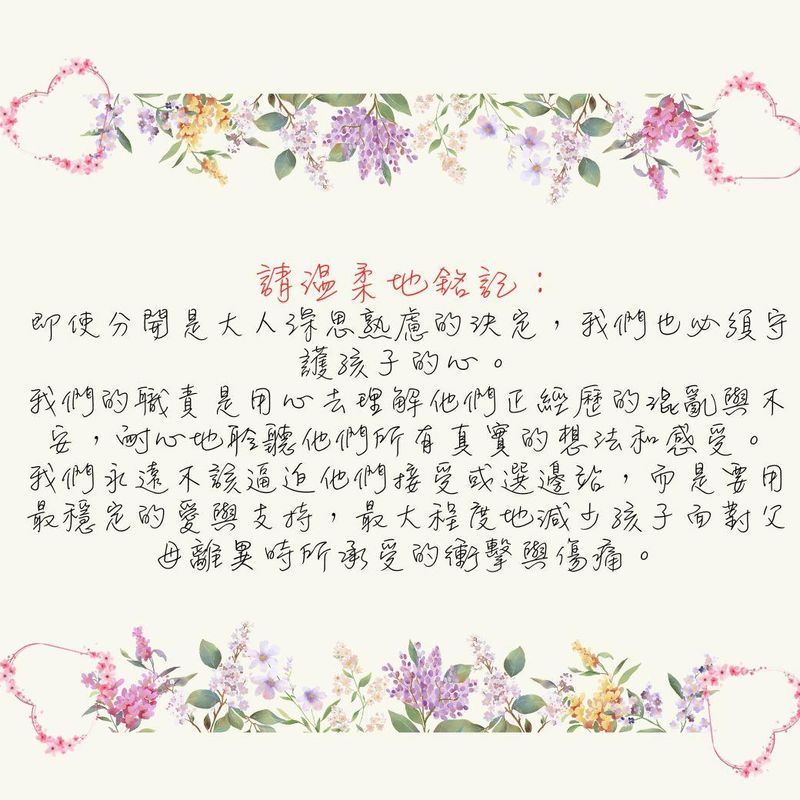 請溫柔地銘記：
即使分開是大人深思熟慮的決定，我們也必須守
護孩子的心。
我們的職責是用心去理解他們正經歷的混亂與不
安，耐心地聆聽他們所有真實的想法和感受。
我們永遠不該逼迫他們接受或選邊站，而是要用
最穩定的愛與支持，最大程度地減少孩子面對父
母離異時所承受的衝擊與傷痛。